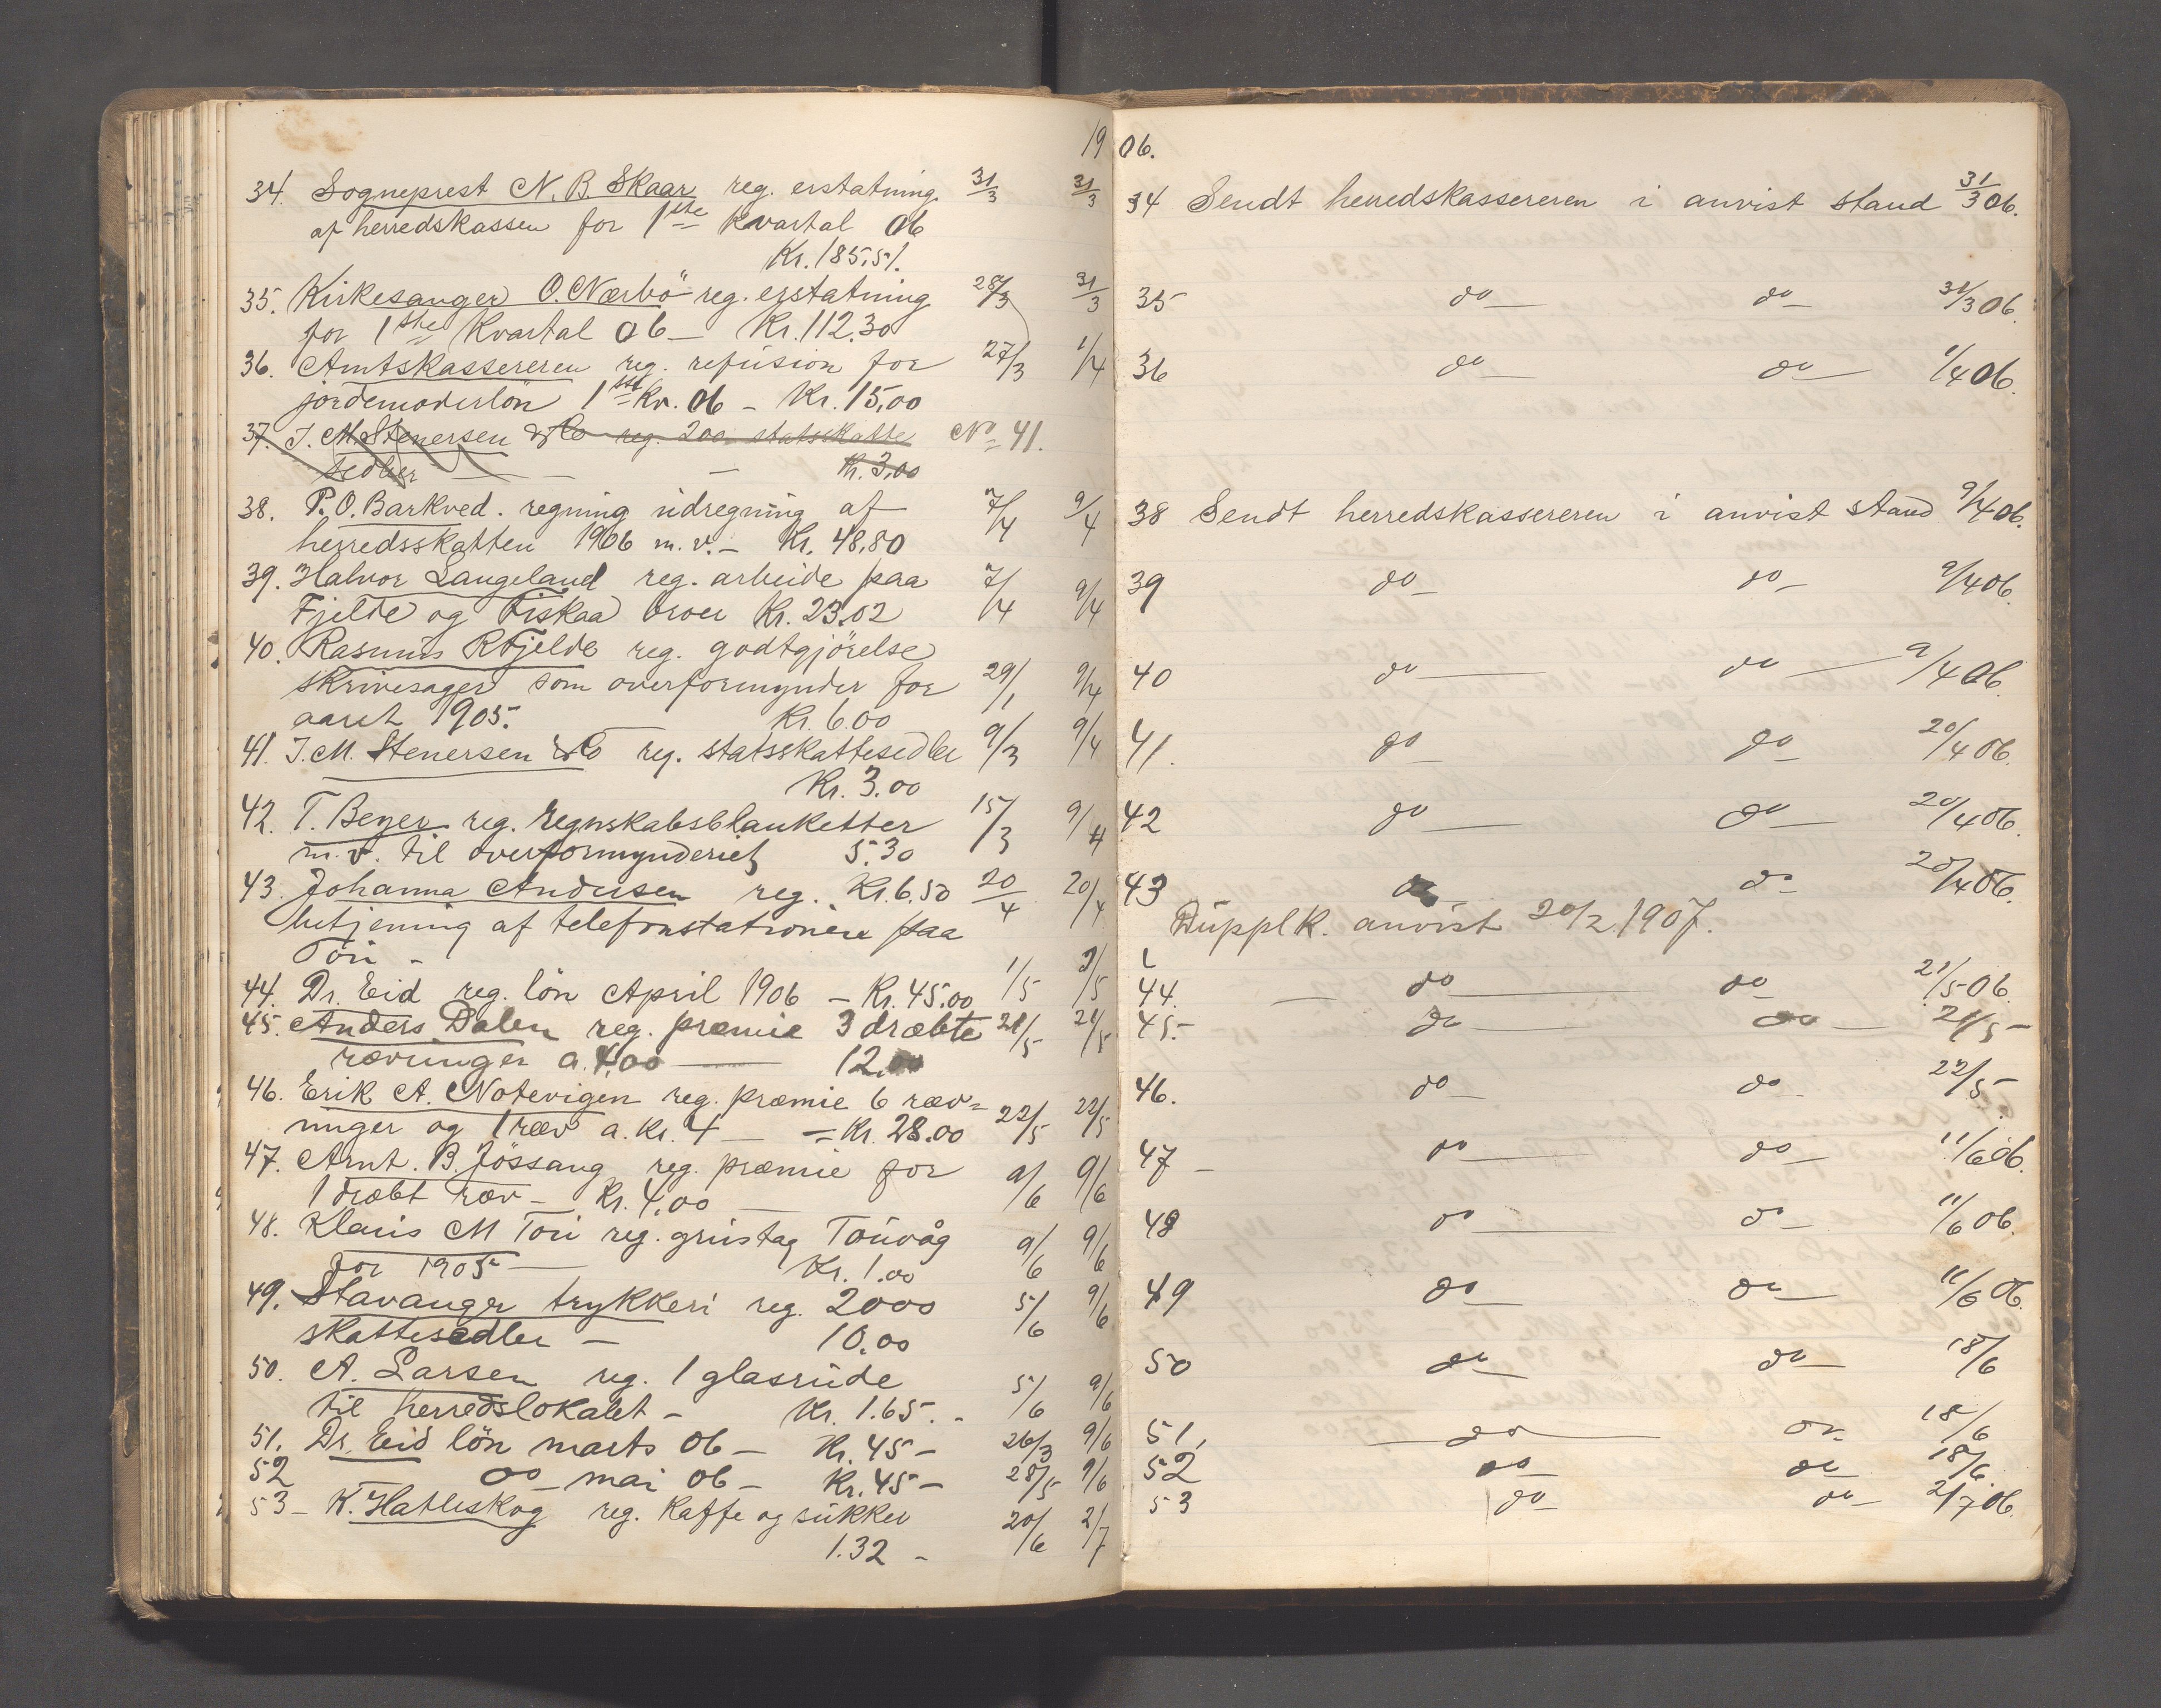 1906.
34. Sogneprest N. B. Skaar reg. erstatning 31/3 31/3
af herredskassen for 1ste kvartal 06
Kr. 185,51.
35. Kirkesanger O. Nærbö reg. erstatning 28/3 31/3
for 1ste Kvartal 06 — Kr. 112.30
36. Amtskassereren reg. refusion for 27/3 1/4
jordemoderlön 1ste Kv. 06 — Kr. 15,00
37. J. M. Stenersen & Co reg. 200 statsskatte No 41.
sedler — — Kr. 3,00
38. P. O. Barkved. regning udregning af 7/4 9/4
herredsskatten 1906 m. v. — Kr. 48,80
39. Halvor Langeland reg. arbeide paa 7/4 9/4
Fjelde og Fiskaa broer Kr. 23.02
40. Rasmus R Fjelde reg. godtgjörelse
skrivesager som overformynder for 29/1 9/4
aaret 1905. Kr. 6.00
41. J. M. Stenersen & Co reg. statsskattesedler 9/3 9/4
Kr. 3.00
42. T. Beyer reg. regnskabsblanketter 15/3 9/4
m. v. til overformynderiet 5.30
43. Johanna Andersen reg. Kr. 6,50 20/4 20/4
betjening af telefonstationen paa
Tou —
44. Dr. Eid reg. lön April 1906 — Kr. 45.00 1/5 2/5
45. Anders Dalen reg. præmie 3 dræbte 21/5 21/5
rævunger a. 4,00 — 12,00
46. Erik A. Notevigen reg. præmie 6 ræv=
unger og 1 ræv a. Kr. 4 — = Kr. 28.00 22/5 22/5
47. Arnt. B. Jössang reg. præmie for 9/6 9/6
1 dræbt ræv — Kr. 4,00 —
48. Klaus M Tou reg. grustag Touvåg 9/6 9/6
for 1905 — Kr. 1.00
49. Stavanger trykkeri reg. 2000 5/6 9/6
skattesedler — 10.00
50. A. Larsen reg. 1 glasrude 5/6 9/6
til herredslokalet — Kr. 1.65. -
51. Dr. Eid lön marts 06 — Kr. 45 — 26/3 9/6
52 do — mai 06 — Kr. 45 — 28/5 9/6
53 — K. Hatleskog reg. Kaffe og sukker 20/6 2/7
1.32 —
34 Sendt herredskassereren i anvist stand 31/3 06.
35 do — do — 31/3 06.
36 do — do — 1/4 06.
38 Sendt herredskassereren i anvist stand 9/4 06.
39 do — do — 9/4 06.
40 do — do — 9/4 06.
41. do — do — 20/4 06.
42 do — do — 20/4 06.
43 do do — 20/4 06.
Dupplk. anvist 20/2 1907.
44. — do — do — 21/5 06.
45. — do — do — 21/5 —
46. do — do — 22/5 —
47 — do — do — 11/6 06.
48 do — do — 11/6 06.
49 do — do — 11/6 06.
50 do — do — 18/6
51, — do — do — 18/6
52 do — do — 18/6.
53 do — do — 2/7 06.